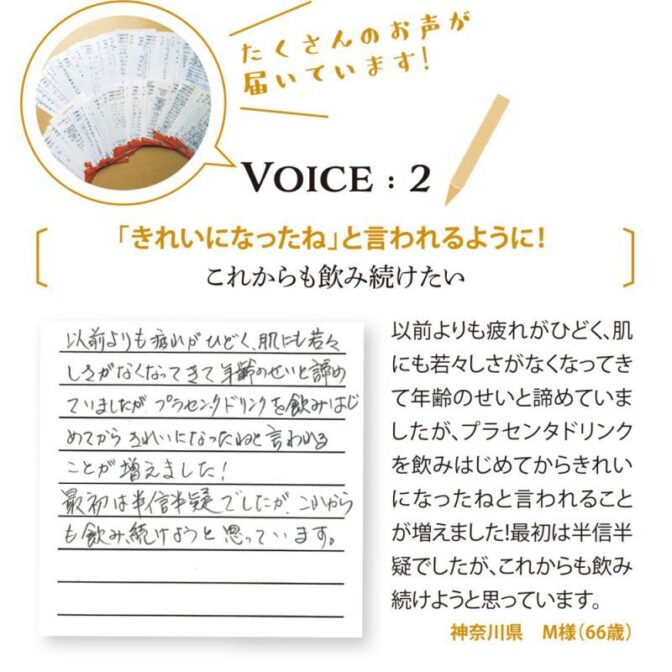 たくさんのお声が
届いています!
VOICE : 2
「きれいになったね」と言われるように!
これからも飲み続けたい
以前よりも疲れがひどく、肌にも若々
しさがなくなってきて年齢のせいと諦め
ていましたが プラセンタドリンクを飲みはじ
めてから きれいになったねと言われる
ことが増えました!
最初は半信半疑でしたが、これから
も飲み続けようと思っています。
以前よりも疲れがひどく、肌
にも若々しさがなくなってき
て年齢のせいと諦めていま
したが、プラセンタドリンク
を飲みはじめてからきれい
になったねと言われること
が増えました!最初は半信半
疑でしたが、これからも飲み
続けようと思っています。
神奈川県 M様(66歳)